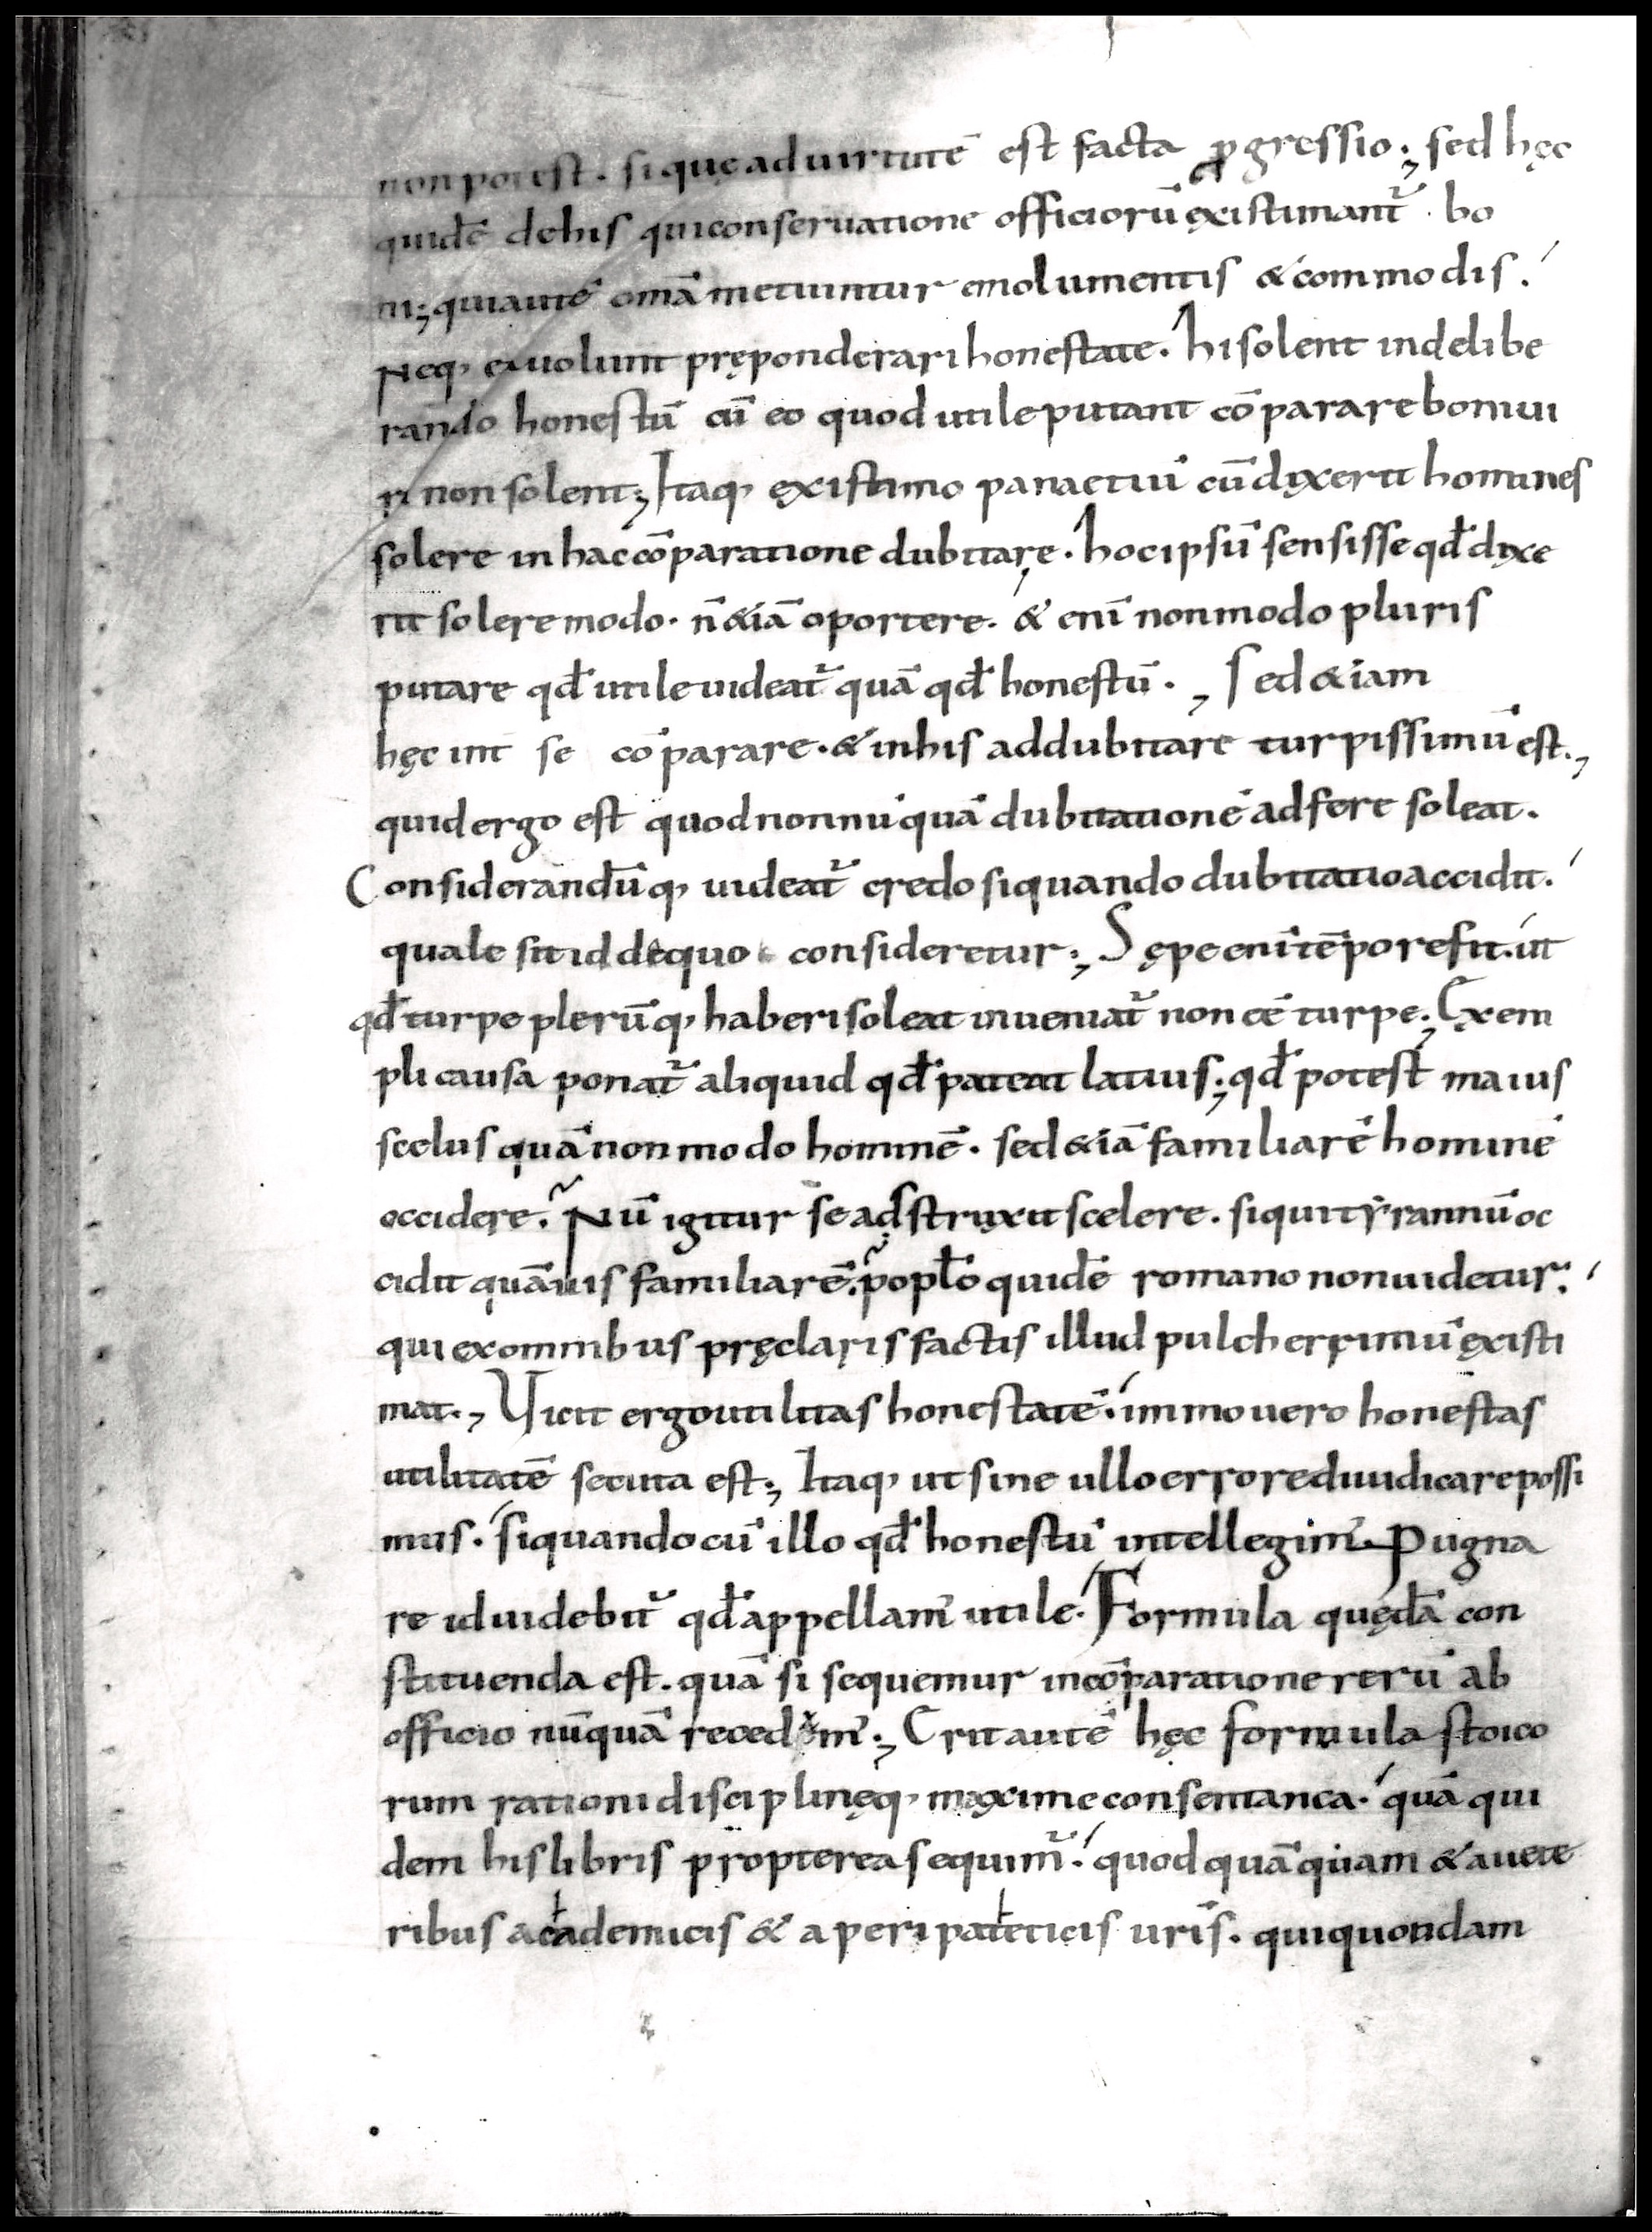 non potest. si quę ad uirtutē est facta ꝓgressio; sed hęc
quidē de his qui conseruatione officiorū ęxistimant᷑. bo
ni; qui autē om̄ia metiuntur emolumentis & commodis.
Neq; ea uolunt pręponderari honestate. hi solent in delibe
rando honestū cū eo quod utile putant cōparare boni ui
ri non solent; Itaq; ęxistimo panaetiū cū dixerit homines
solere in hac cōparatione dubitare. hoc ipsū sensisse qđ dixe
rit solere modo. n̄ &iā oportere. & enī non modo pluris
putare qđ utile uideat᷑ quā qđ honestū., Sed &iam
hęc int se cōparare. & in his addubitare turpissimū est.,
quid ergo est quod nonnūquā dubitationē adfere soleat.
Considerandūq; uideat᷑ credo si quando dubitatio accidit.
quale sit id de quo consideretur; Sępe enī tēpore fit. ut
qđ turpe plerūq; haberi soleat inueniat᷑ non eē turpe; Exem
pli causa ponat᷑ aliquid qđ pateat latius; qđ potest maius
scelus quā non modo hominē. sed &iā familiarē hominē
occidere. Nū igitur se adstruxit scelere. si qui tyrannū oc
cidit quāuis familiarē. popl̄o quidē romano non uidetur.
qui ex omnibus pręclaris factis illud pulcherrimū ęxisti
mat., Vicit ergo utilitas honestatē. immo uero honestas
utilitatē secuta est; Itaq; ut sine ullo errore diiudicare possi
mus. si quando cū illo qđ honestū intellegim̄ Pugna
re id uidebit᷑ qđ appellam̄ utile. Formula quędā con
stituenda est. quā si sequemur in cōparatione rerū ab
officio nūquā recedem̄; Erit autē hęc formula stoico
rum rationi disciplinęq; maxime consentanea. quā qui
dem his libris propterea sequim᷑. quod quāquam & a uete
ribus academicis & a peripateticis uris̄. qui quondam